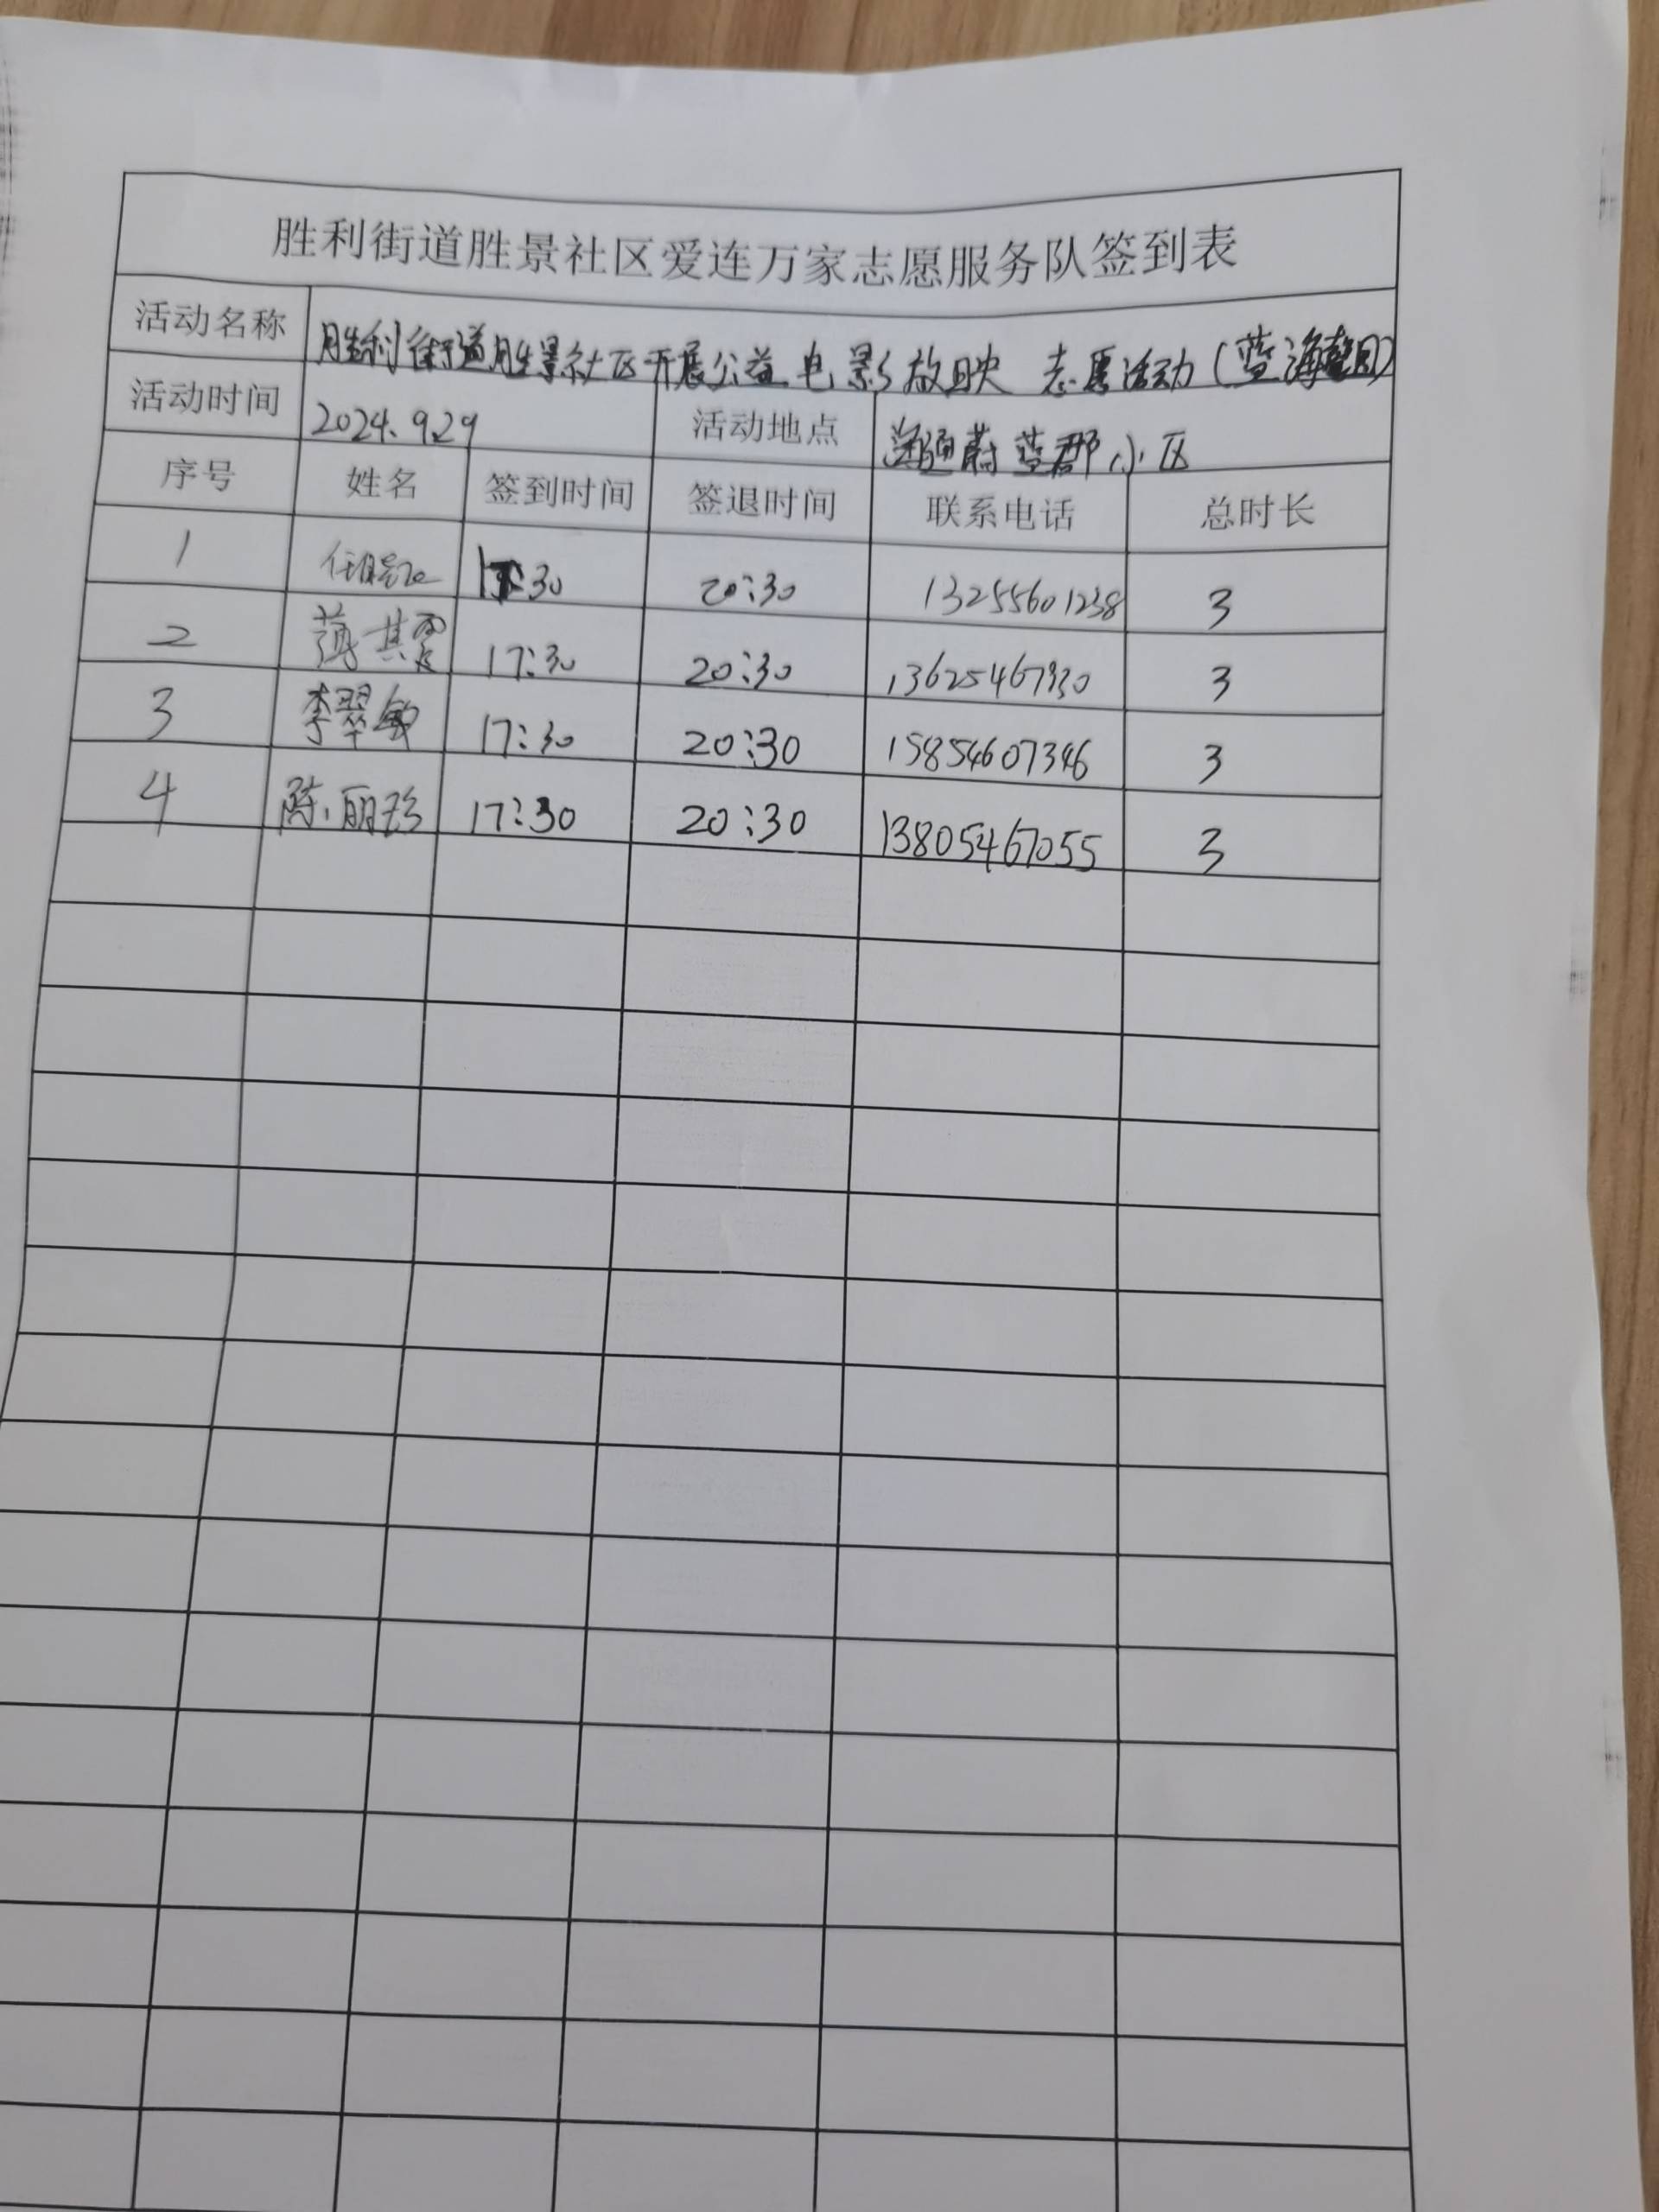 胜利街道胜景社区爱连万家志愿服务队签到表
活动名称 胜利街道胜景社区开展公益电影放映 志愿活动(蓝海
活动时间 2024.9.29 活动地点 蔚蓝郡小区
序号 姓名 签到时间 签退时间 联系电话 总时长
1 :30 20:30 13255601238 3
2 薄其霞 17:30 20:30 3
3 李翠敏 17:30 20:30 15854607346 3
4 陈丽珍 17:30 20:30 13805467055 3